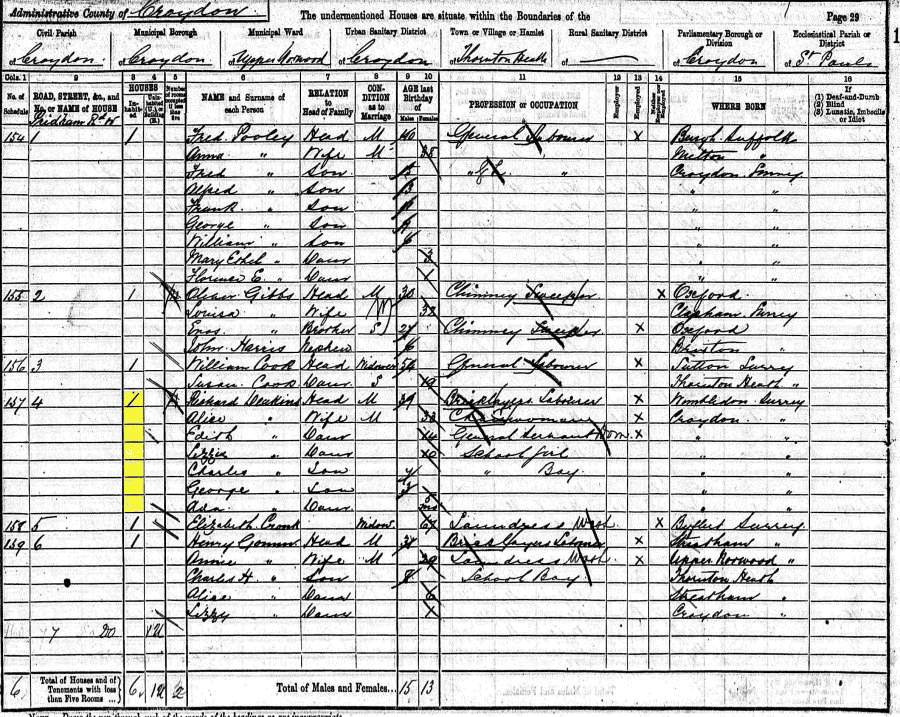 Administrative County of Croydon The undermentioned Houses are situate within the Boundaries of the Page 29
Civil Parish Municipal Borough Municipal Ward Urban Sanitary District Town or Village or Hamlet Rural Sanitary District Parliamentary Borough or Division Ecclesiastical Parish or District
of Croydon of Croydon of Upper Norwood of Croydon of Thornton Heath of — of Croydon of St Pauls
Cols. 1 2 3 4 5 6 7 8 9 10 11 12 13 14 15 16
No. of Schedule ROAD, STREET, &c., and No. or NAME of HOUSE HOUSES Inhabited Uninhabited (U.) or Building (B.) Number of rooms occupied if less than five NAME and Surname of each Person RELATION to Head of Family CONDITION as to Marriage AGE last Birthday of Males Females PROFESSION or OCCUPATION Employer Employed Neither Employer nor Employed WHERE BORN If (1) Deaf-and-Dumb (2) Blind (3) Lunatic, Imbecile or Idiot
154 1 1 Fred Pooley Head M 40 General Labourer X Burgh Suffolk
Anna " Wife M 35 Melton "
Fred " Son " " Croydon Surrey
Alfred " Son 13 " "
Frank " Son " "
George " Son " "
William " Son 6 " "
Mary Ethel " Daur 3 " "
Florence E. " Daur 1 " "
155 2 1 Oliver Gibbs Head M 30 Chimney Sweeper X Oxford
Louisa " Wife M 32 Clapham Surrey
Enos " Brother S 27 Chimney Sweeper X Oxford
John Harris Nephew 6 Brixton "
156 3 1 William Cook Head Widower 54 General Labourer X Sutton Surrey
Susan Cook Daur S 19 Thornton Heath "
157 4 1 Richard Deakins Head M 39 Bricklayers Labourer X Wombledon Surrey
Alice " Wife M 32 Charwoman X Croydon "
Edith " Daur 14 General Servant Dom X " "
Lizzie " Daur 10 School Girl " "
Charles " Son " Boy " "
George " Son 3 " "
Ada " Daur 5 mo " "
158 5 1 Elizabeth Cronk Widow 67 Laundress Wash X Byfleet Surrey
159 6 1 Henry Head M 31 Bricklayers Labourer X Streatham "
Annie " Wife M 29 Laundress Wash X Upper Norwood "
Charles H " Son 8 School Boy Thornton Heath
Alice " Daur 6 Streatham "
Lizzy " Daur 1 Croydon "
7 Do 1U
6 Total of Houses and of Tenements with less than Five Rooms 6 1U 2 Total of Males and Females... 15 13